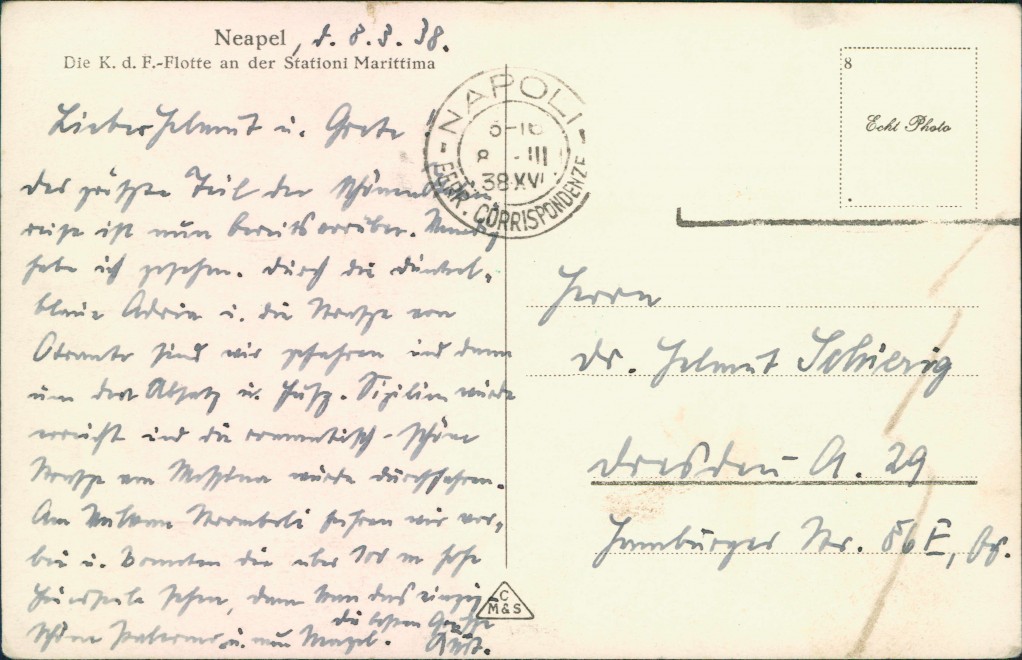 Neapel, d. 8.3.38.
Die K. d. F.-Flotte an der Stationi Marittima
Lieber Helmut u. Grete
Der größte Teil der schönen
reise ist nun bereits vorüber.
habe ich gesehen. Durch die dunkel-
blaue Adria u. die Straße von
Otranto sind wir gefahren und dann
um den Absatz u. Fuß. Sizilien wurde
erreicht und die romantisch-schöne
Straße von Messina wurde durchfahren.
Am Vulkan Stromboli fuhren wir vor-
bei u. konnten die über 100 m hohe
Feuersäule sehen, dann kam das einzig
schöne Palermo u. nun Neapel.
die besten Grüße
NAPOLI
8 -III
38 XVI
FERR. CORRISPONDENZE
8
Echt Photo
Herrn
Dr. Helmut Schierig
Dresden A. 29
Hamburger Str. 86 E,
C
M&S